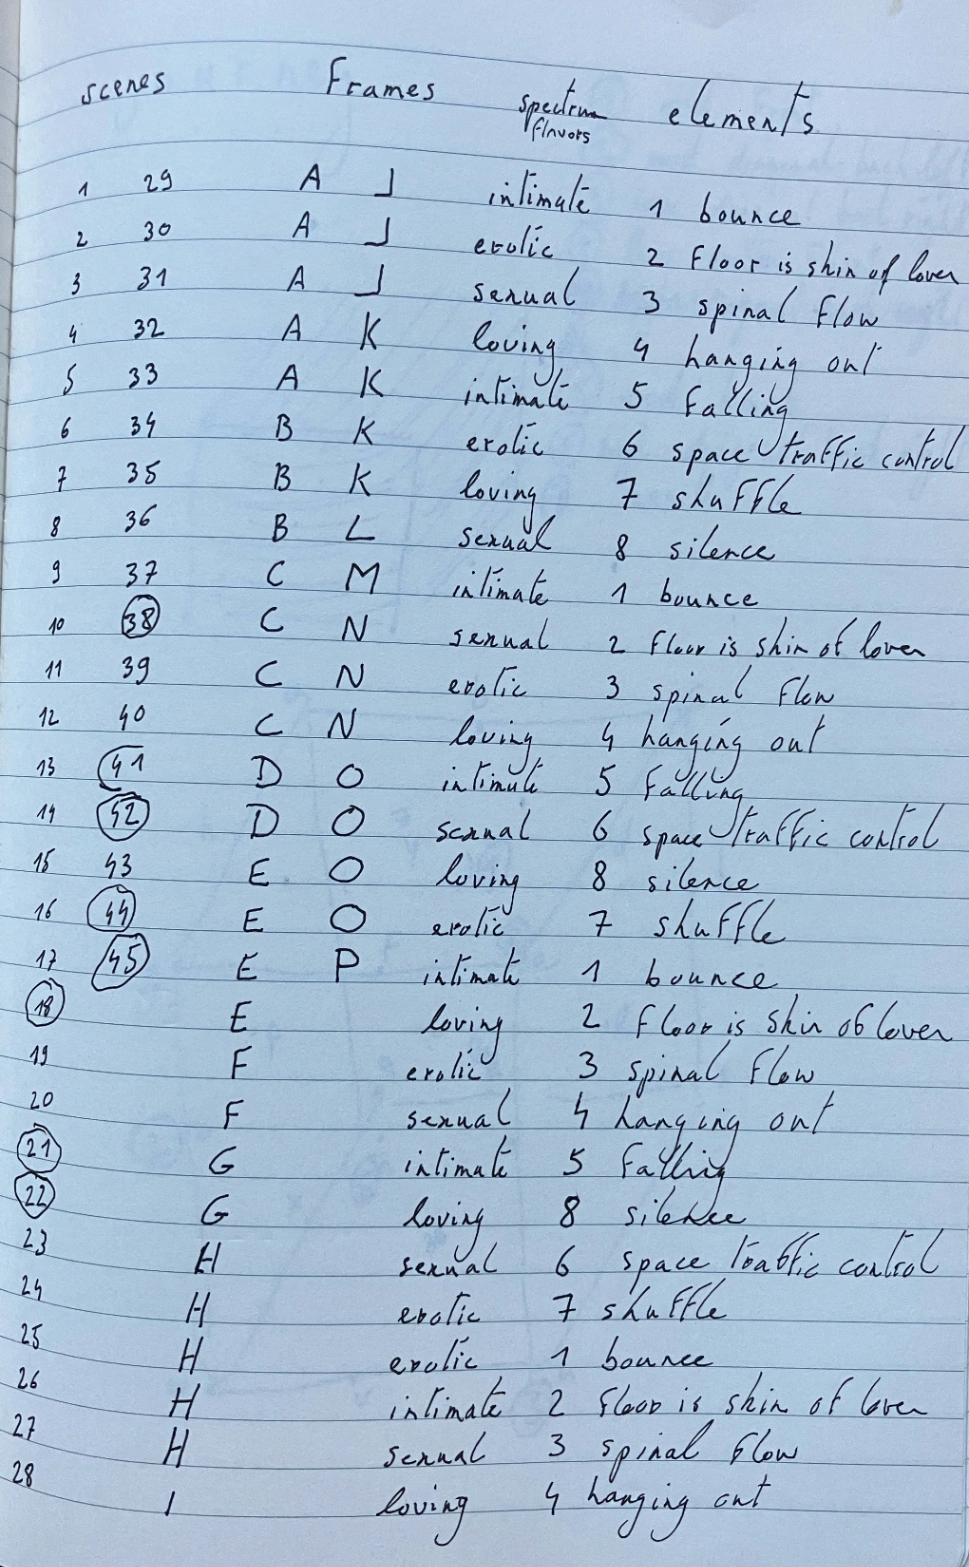 scenes Frames spectrum flavors elements
1 29 A J intimate 1 bounce
2 30 A J erotic 2 floor is skin of lover
3 31 A J sexual 3 spinal flow
4 32 A K loving 4 hanging out
5 33 A K intimate 5 falling
6 34 B K erotic 6 space traffic control
7 35 B K loving 7 shuffle
8 36 B L sexual 8 silence
9 37 C M intimate 1 bounce
10 38 C N sexual 2 floor is skin of lover
11 39 C N erotic 3 spinal flow
12 40 C N loving 4 hanging out
13 41 D O intimate 5 falling
14 42 D O sexual 6 space traffic control
15 43 E O loving 8 silence
16 44 E O erotic 7 shuffle
17 45 E P intimate 1 bounce
18 E loving 2 floor is skin of lover
19 F erotic 3 spinal flow
20 F sexual 4 hanging out
21 G intimate 5 falling
22 G loving 8 silence
23 H sexual 6 space traffic control
24 H erotic 7 shuffle
25 H erotic 1 bounce
26 H intimate 2 floor is skin of lover
27 H sexual 3 spinal flow
28 I loving 4 hanging out